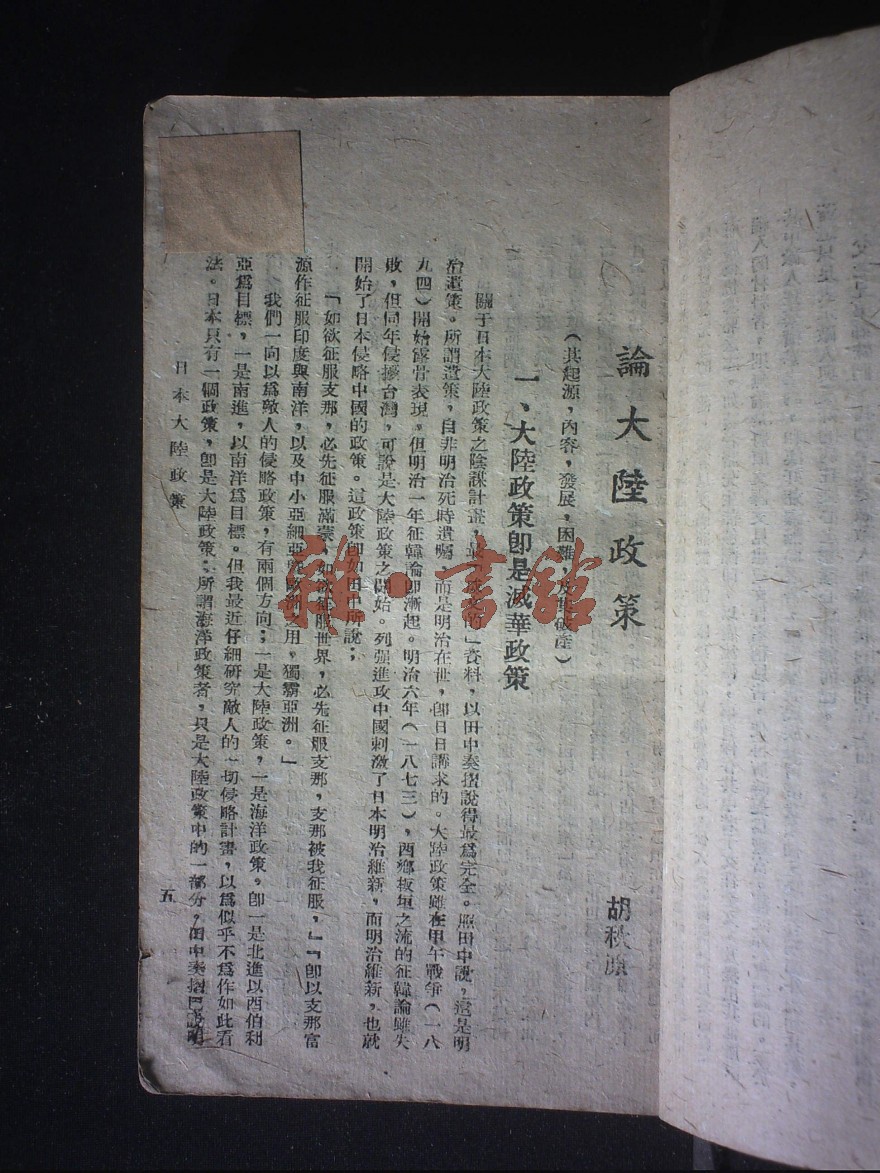 論大陸政策
胡秋原
(其起源,內容,發展,困難,及其破產)
一、大陸政策卽是滅華政策
關于日本大陸政策之陰謀計畫,文的」資料,以田中奏摺說得最爲完全。照田中說,這是明
治遺策。所謂遺策,自非明治死時遺囑,而是明治在世,卽日日講求的。大陸政策雖在甲午戰爭(一八
九四)開始露骨表現,但明治一年征韓論卽漸起。明治六年(一八七三),西鄉板垣之流的征韓論雖失
敗,但同年侵擾台灣,可說是大陸政策之開始。列强進攻中國刺激了日本明治維新,而明治維新,也就
開始了日本侵略中國的政策。這政策卽如田中所說;
「如欲征服支那,必先征服滿蒙,如欲征服世界,必先征服支那,支那被我征服,」「卽以支那富
源作征服印度與南洋,以及中小亞細亞歐洲之用,獨霸亞洲。」
我們一向以爲敵人的侵略政策,有兩個方向;一是大陸政策,一是海洋政策。卽一是北進以西伯利
亞爲目標,一是南進,以南洋爲目標。但我最近仔細研究敵人的一切侵略計畫,以爲似乎不爲作如此看
法。日本只有一個政策,卽是大陸政策;所謂海洋政策者,只是大陸政策中的一部分,田中奏摺已說明
日本大陸政策
五
雜·書館